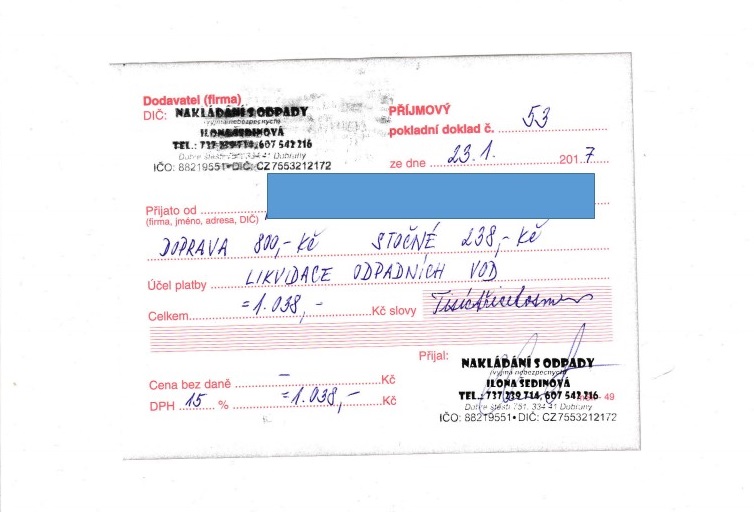 Dodavatel (firma)
DIČ: NAKLÁDÁNÍ S ODPADY
(vyjma nebezpečných)
ILONA ŠEDINOVÁ
TEL.: 737 239 714, 607 542 216
Dobré štěstí 751, 334 41 Dobřany
IČO: 88219551 • DIČ: CZ7553212172
PŘÍJMOVÝ
pokladní doklad č. 53
ze dne 23.1. 2017
Přijato od
(firma, jméno, adresa, DIČ)
DOPRAVA 800,- Kč STOČNÉ 238,- Kč
Účel platby LIKVIDACE ODPADNÍCH VOD
Celkem =1.038,- Kč slovy
Přijal:
NAKLÁDÁNÍ S ODPADY
(vyjma nebezpečných)
ILONA ŠEDINOVÁ
TEL.: 737 239 714, 607 542 216
Dobré štěstí 751, 334 41 Dobřany
IČO: 88219551 • DIČ: CZ7553212172
Cena bez daně – Kč
DPH 15 % =1.038,- Kč
49